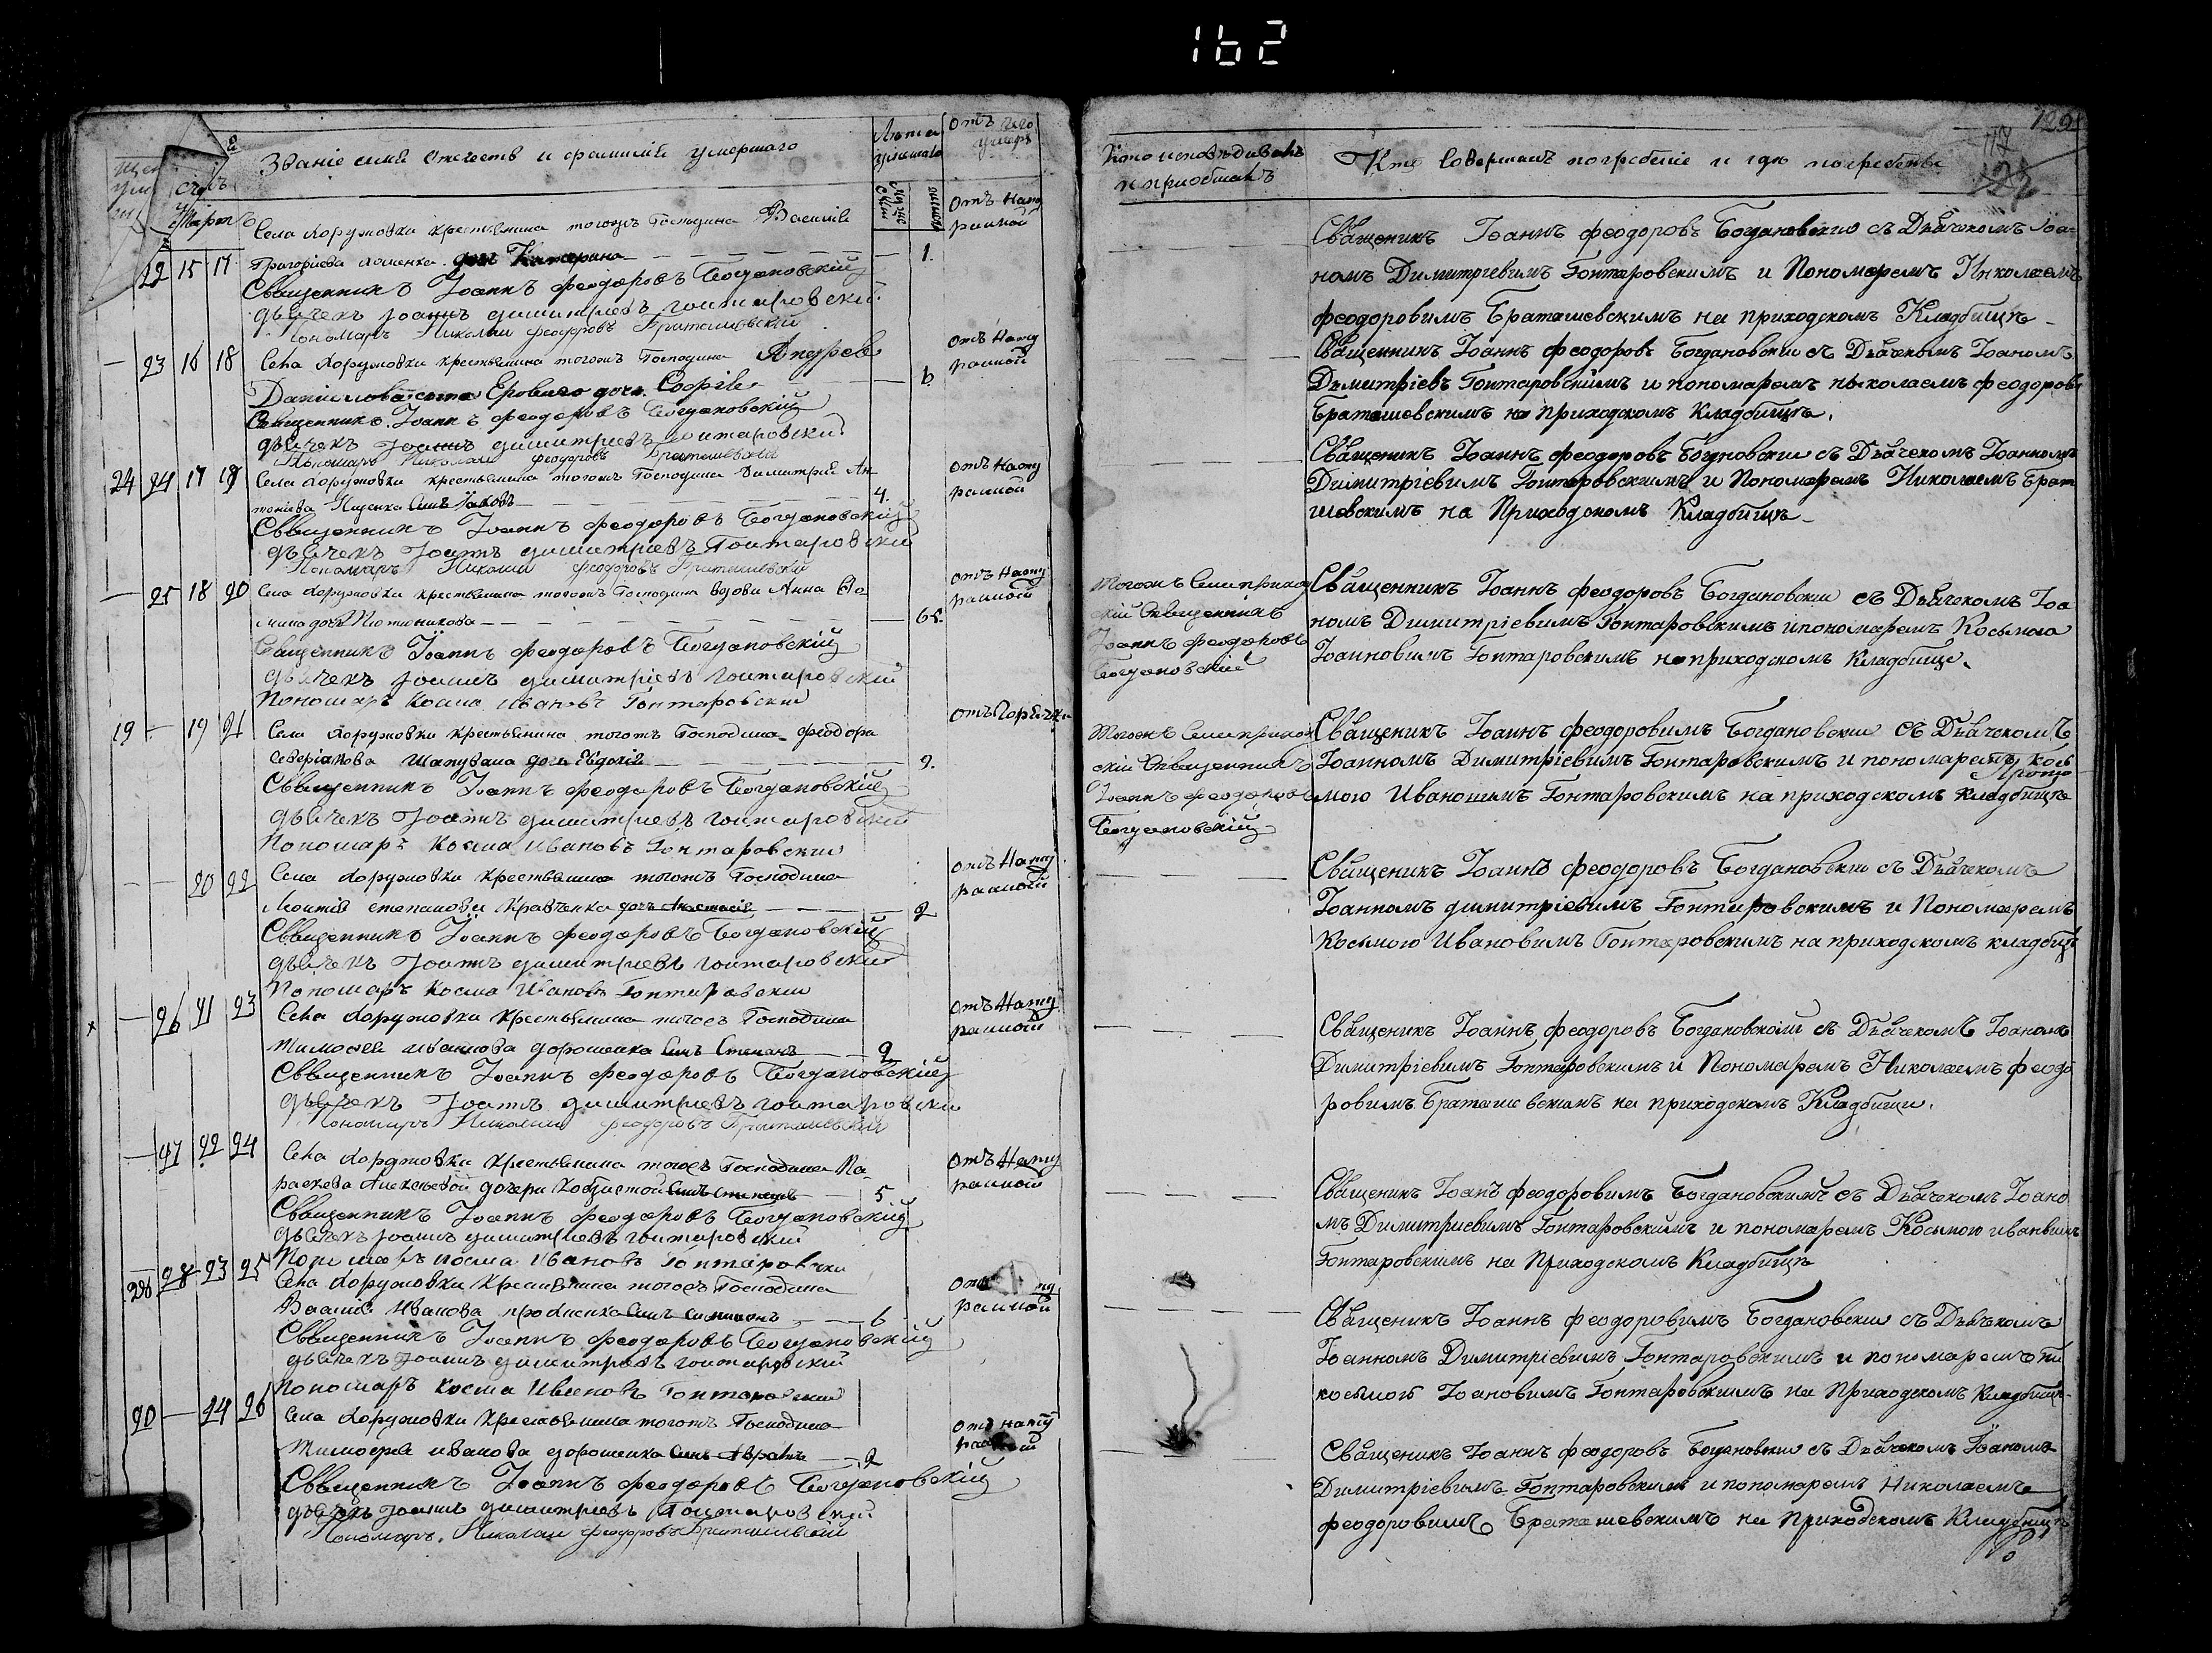 162
Званіе имя Отечество и фамилія умершаго
Лѣта умершаго
отъ чего умеръ
мартъ
Села Хоружовки крестьянина тогожъ Господина Василія
отъ нату
ральной
22 15 17 Григоріева Хоменка дочь Катерина — 1.
Священникъ Іоаннъ Феодоровъ Богдановскій
дьячекъ Іоаннъ Димитріевъ Гонтаровскій
Пономарь Николай Феодоровъ Браташевскій
— 23 16 18 Села Хоружовки крестьянина тогожъ Господина Андрея
отъ нату
ральной
Данилова дочь Софія — 6
Священникъ Іоаннъ Феодоровъ Богдановскій
дьячекъ Іоаннъ Димитріевъ Гонтаровскій
Пономарь Николай Феодоровъ Браташевскій
24 24 17 19 Села Хоружовки крестьянина тогожъ Господина Димитрія Ан
отъ нату
ральной
тонова Ищенка Сынъ Іаковъ — 4.
Священникъ Іоаннъ Феодоровъ Богдановскій
дьячекъ Іоаннъ Димитріевъ Гонтаровскій
Пономарь Николай Феодоровъ Браташевскій
— 25 18 20 Села Хоружовки крестьянина тогожъ Господина вдова Анна
отъ нату
ральной
дочь — 65.
Священникъ Іоаннъ Феодоровъ Богдановскій
дьячекъ Іоаннъ Димитріевъ Гонтаровскій
Пономарь Косма Ивановъ Гонтаровскій
19 — 19 21 Села Хоружовки крестьянина тогожъ Господина Феодора
отъ Горячки
Северіанова Шаповала дочь Евдокія — 9.
Священникъ Іоаннъ Феодоровъ Богдановскій
дьячекъ Іоаннъ Димитріевъ Гонтаровскій
Пономарь Косма Ивановъ Гонтаровскій
— — 20 22 Села Хоружовки крестьянина тогожъ Господина
отъ нату
ральной
Леонтія Степанова Кравченка дочь Анастасія — 2
Священникъ Іоаннъ Феодоровъ Богдановскій
дьячекъ Іоаннъ Димитріевъ Гонтаровскій
Пономарь Косма Ивановъ Гонтаровскій
— 26 21 23 Села Хоружовки крестьянина тогожъ Господина
отъ нату
ральной
Тимофея Иванова Дорошенка Сынъ Степанъ — 2
Священникъ Іоаннъ Феодоровъ Богдановскій
дьячекъ Іоаннъ Димитріевъ Гонтаровскій
Пономарь Николай Феодоровъ Браташевскій
— 27 22 24 Села Хоружовки крестьянина тогожъ Господина Па
отъ нату
ральной
раскева Алексѣевой дочери Кобзистой Сынъ — 5.
Священникъ Іоаннъ Феодоровъ Богдановскій
дьячекъ Іоаннъ Димитріевъ Гонтаровскій
Пономарь Косма Ивановъ Гонтаровскій
28 23 25 Села Хоружовки крестьянина тогожъ Господина
ральной
Василія Иванова Сынъ — 6
Священникъ Іоаннъ Феодоровъ Богдановскій
дьячекъ Іоаннъ Димитріевъ Гонтаровскій
Пономарь Косма Ивановъ Гонтаровскій
20 — 24 26 Села Хоружовки крестьянина тогожъ Господина
отъ нату
Тимофея Иванова Дорошенка Сынъ — 2
Священникъ Іоаннъ Феодоровъ Богдановскій
дьячекъ Іоаннъ Димитріевъ Гонтаровскій
Пономарь Николай Феодоровъ Браташевскій
Кто исповѣдивалъ
и приобщалъ
Кто совершалъ погребеніе и гдѣ погребены
Священикъ Іоаннъ Феодоровъ Богдановскій съ Дьячекомъ Іоа
номъ Димитріевимъ Гонтаровскимъ и Пономаремъ Николаемъ
Феодоровимъ Браташевскимъ на приходскомъ Кладбищѣ
Священникъ Іоаннъ Феодоровъ Богдановскій съ Дьячекомъ Іоаномъ
Димитріевъ Гонтаровскимъ и пономаремъ николаемъ феодоров
Браташевскимъ на приходскомъ Кладбищѣ.
Священикъ Іоаннъ Феодоровъ Богдановскій съ Дьячекомъ Іоанномъ
Димитріевимъ Гонтаровскимъ и Пономаремъ Николаемъ Брат
шевскимъ на Приходскомъ Кладбищѣ
Тогожъ Села приход
скій Священникъ
Іоаннъ Феодоровъ
Богдановскій
Священникъ Іоаннъ Феодоровъ Богдановскій съ Дьячекомъ Іоа
номъ Димитріевимъ Гонтаровскимъ и пономаремъ Косьмою
Іоановимъ Гонтаровскимъ на приходскомъ Кладбище.
Тогожъ Села приход
скій Священникъ
Іоаннъ Феодоровъ
Богдановскій
Священикъ Іоаннъ Феодоровимъ Богдановскій съ Дьячекомъ
Іоанномъ Димитріевимъ Гонтаровскимъ и пономаремъ кось
мою Ивановимъ Гонтаровскимъ на приходскомъ кладбищѣ
Священикъ Іоаннъ Феодоровъ Богдановскій съ Дьячекомъ
Іоанномъ димитріевимъ Гонтаровскимъ и Пономаремъ
Косьмою Ивановимъ Гонтаровскимъ на приходскомъ кладбищѣ
Священикъ Іоаннъ Феодоровъ Богдановскій съ Дьячекомъ Іоаномъ
Димитріевимъ Гонтаровскимъ и Пономаремъ Николаемъ Феодо
ровимъ Браташевскимъ на приходскомъ Кладбищи.
Священикъ Іоанъ Феодоровимъ Богдановскимъ съ Дьячекомъ Іоано
мъ Димитриевимъ Гонтаровскимъ и пономаремъ Косьмою
Гонтаровскимъ на Приходскомъ Кладбищѣ
Священикъ Іоаннъ Феодоровимъ Богдановскій съ Дьячкомъ
Іоанномъ Димитріевимъ Гонтаровскимъ и пономаремъ
косьмою Іоановимъ Гонтаровскимъ на Приходскомъ Кладбищѣ
Священикъ Іоаннъ Феодоровъ Богдановскій съ Дьячекомъ Іоаномъ
Димитріевимъ Гонтаровскимъ и пономаремъ Николаемъ
Феодоровимъ Браташевскимъ на Приходскомъ Кладбищѣ